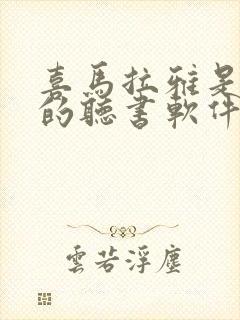 喜馬拉雅是
的聽書軟件
雲若浮塵